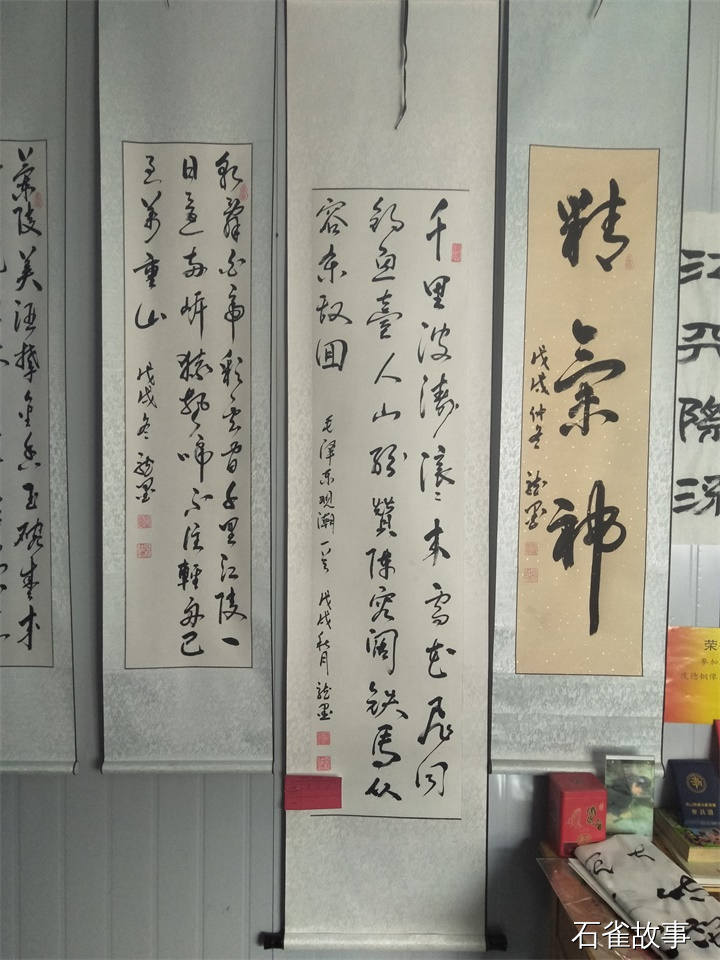 江
際
深
精氣神
戊戌仲冬 龍墨
千里波涛滚〻来雪花飛向
钓鱼臺人山纷赞阵容阔铁馬从
容杀敌回
毛泽东观潮一首 戊戌秋月 龍墨
朝辞白帝彩云间千里江陵一
日还两岸猿声啼不住輕舟已
过万重山
戊戌冬 龍墨
蘭陵美酒鬱金香玉碗盛来
荣
石雀故事